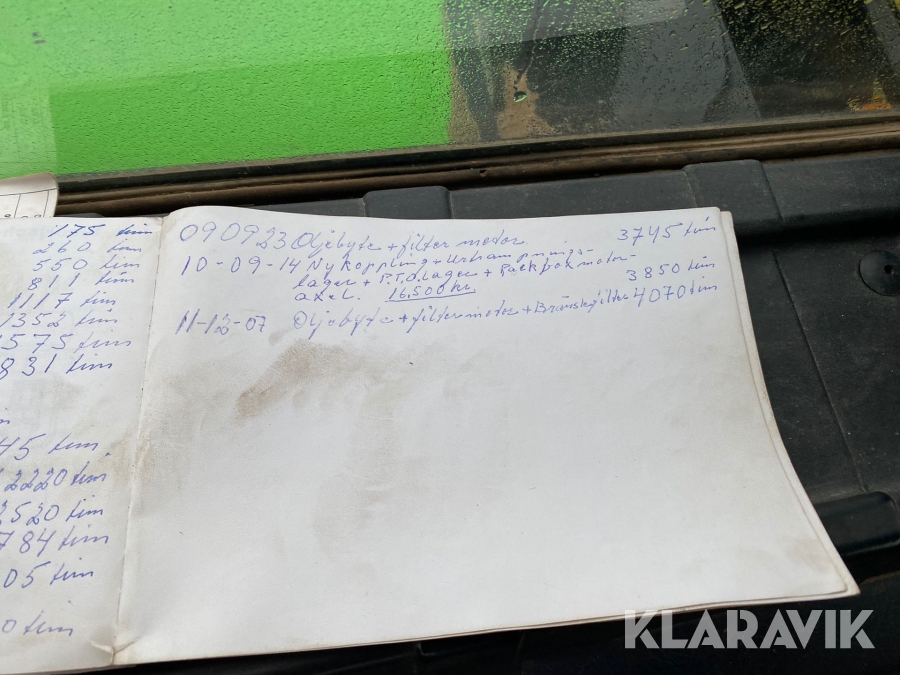 175 tim
260 tim
550 tim
811 tim
1117 tim
1352 tim
575 tim
831 tim
45 tim.
2220 tim
2520 tim
784 tim
05 tim
0 tim
090923 Oljebyte + filter motor 3745 tim
10-09-14 Ny koppling + Urtrampnings-
lager + P.T.O. lager + Packbox motor-
axel. 16.500 kr. 3850 tim
11-12-07 Oljebyte + filter motor + Bränslefilter 4070 tim
KLARAVIK